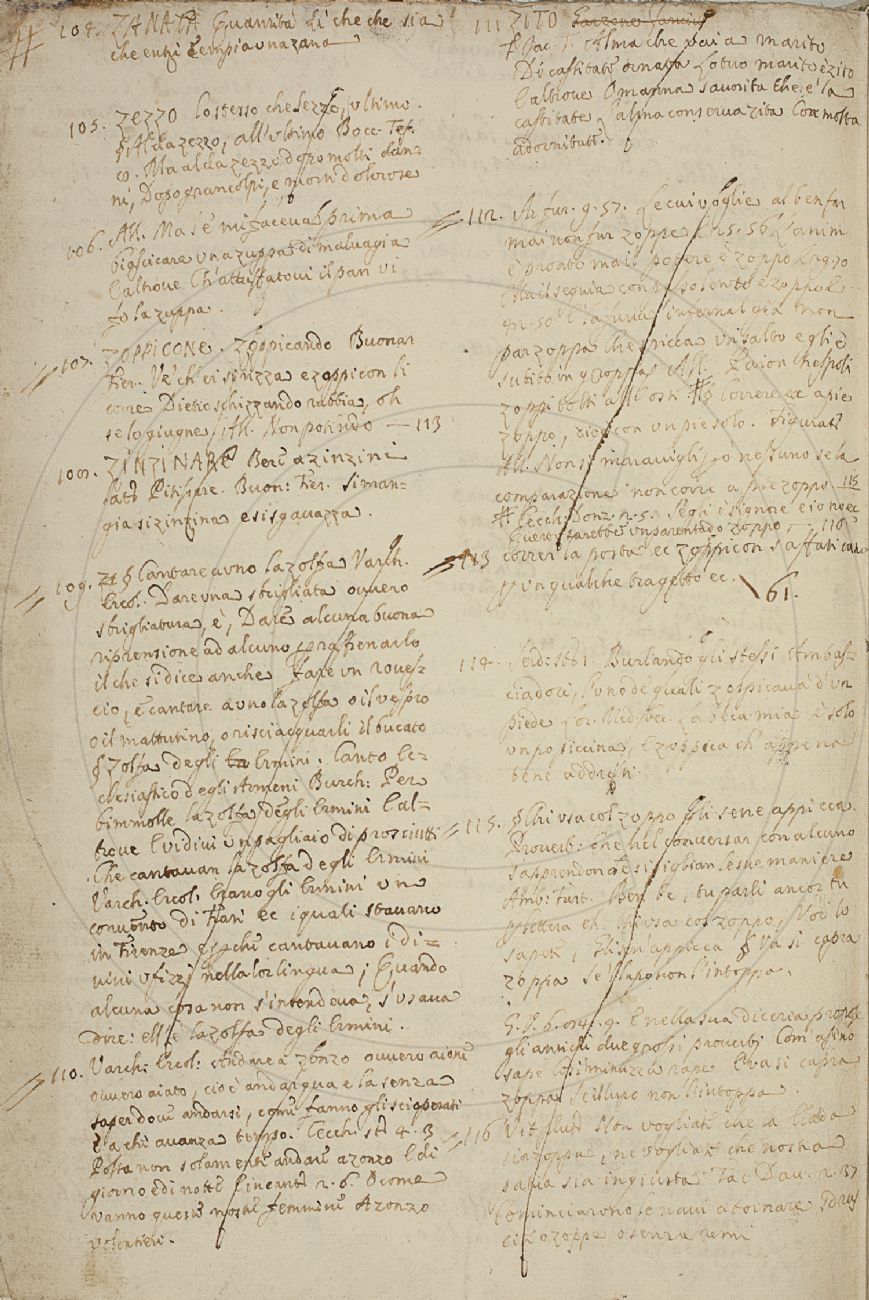 104. ZANATA Quantità di che che sia
che entri e empia una zana
105. ZEZZO lo stesso che sezzo, ultimo.
§ Al da zezzo, all'ultimo Bocc. Tes.
9. Ma al da zezzo dopo molti dan-
ni, Dopo gran colpi, e morti dolorose
106. All. Ma s'e' mi faceva prima
biascicare una zuppa di malvagia
E altrove Ch'attuffatovi il pan vi
fo la zuppa.
107. ZOPPICONE. Zoppicando Buonar
Fier. Ve' ch'ei si rizza e zoppicon li
corre Dietro schizzando rabbia, oh
se lo giugne. All. Non potendo — 113
108. ZINZINARE Bere a zinzini
lat. Pitissare. Buon: Fier. Si man-
gia si zinzina e si sgavazza.
109. § Cantare a uno la zolfa Varch.
Ercol. Dare una sbrigliata ovvero
sbrigliatura, è, Dare alcuna buona
riprensione ad alcuno per raffrenarlo
il che si dice anche Fare un rovescio
cio, e cantare a uno la zolfa o il vespro
o il mattutino, o risciacquarli il bucato
§ Zolfa degli Ermini. Canto Ec-
clesiastico degli Armeni Burch: Per
bimmolle la zolfa degli Ermini E al-
trove E vidivi un pagliaio di prosciutti
Che cantavan la zolfa degli Ermini
Varch. Ercol. Erano gli Ermini un
convento di Frati ec i quali stavano
in Firenze e perché cantavano i di-
vini ufizzi nella lor lingua; Quando
alcuna cosa non s'intendeva, s'usava
dire: ell'è la zolfa degli Ermini.
110. Varch. Ercol: Andare a zonzo ovvero aioni
ovvero aiato, cioè andarqua e la senza
saper dove andarsi, come fanno gli scioperati
e a chi avanza tempo. Cecch. 4. 3
Posta non solamente andare a zonzo E di
giorno e di notte Einganni 2. 6. O come
vanno queste nostre femmine A zonzo
volentieri.
111 ZITO
Fr. Jac. T. Alma che vai a marito
Di castitate ornata Lo tuo marito è zito
E altrove O manna saurita che è la
castitate L'alma conserva zita Con molta
adornitate.
112. Ar. fur. 9. 57. Le cui voglie al ben fur
mai non fur zoppe E 25. 56 L'animo
è pronto ma il potere è zoppo E 29. 70
Ma il seguia con passo lento e zoppo E
42. 50 E la furia infernal già non
par zoppa Che spicca un salto e gli è
subito in groppa All. Paion che spoli
zoppi tolti a § Correre ec a piè
zoppo, cioè con un pie solo. Figurat
All. Non si maravigli però nessuno se la
comparazione non corre a piè zoppo. 115
# Cecch. Donz. 2. 5. S'egli è signore e io no ec
E' verrebbe un parentado zoppo — 116
113 correr la posta ec zoppicon s'affaticano
Per qualche tragetto ec. \ 61.
114. Burlando gli stessi Ambas-
ciadori, l'uno de quali zoppicava d'un
piede Lor. Med. La vacca mia è solo
un po piccina, E zoppica ch'appena
bene addreti.
115. § Chi usa col zoppo gli se ne appicca.
Proverb: Che nel conversar con alcuno
s'apprendono e si pigliano le sue maniere
Ambr. furt. Ben be', tu parli ancor tu
per lettera eh. Chi usa col zoppo, Voi lo
sapete, Glien'appicca § Va si capra
zoppa Se 'l lupo non l'intoppa.
G. V. 6. E nella sua diceria propose
gli antichi due grossi proverbi Com'asino
sape così minuzza rape. E va si capra
zoppa Se il lupo non l'intoppa
116 Non vogliate che la
sia zoppa, ne vogliate che nostra
sia ingiusta Tac. Dav. 2. 37
Cominciarono le navi a tornare
zoppe o senza remi